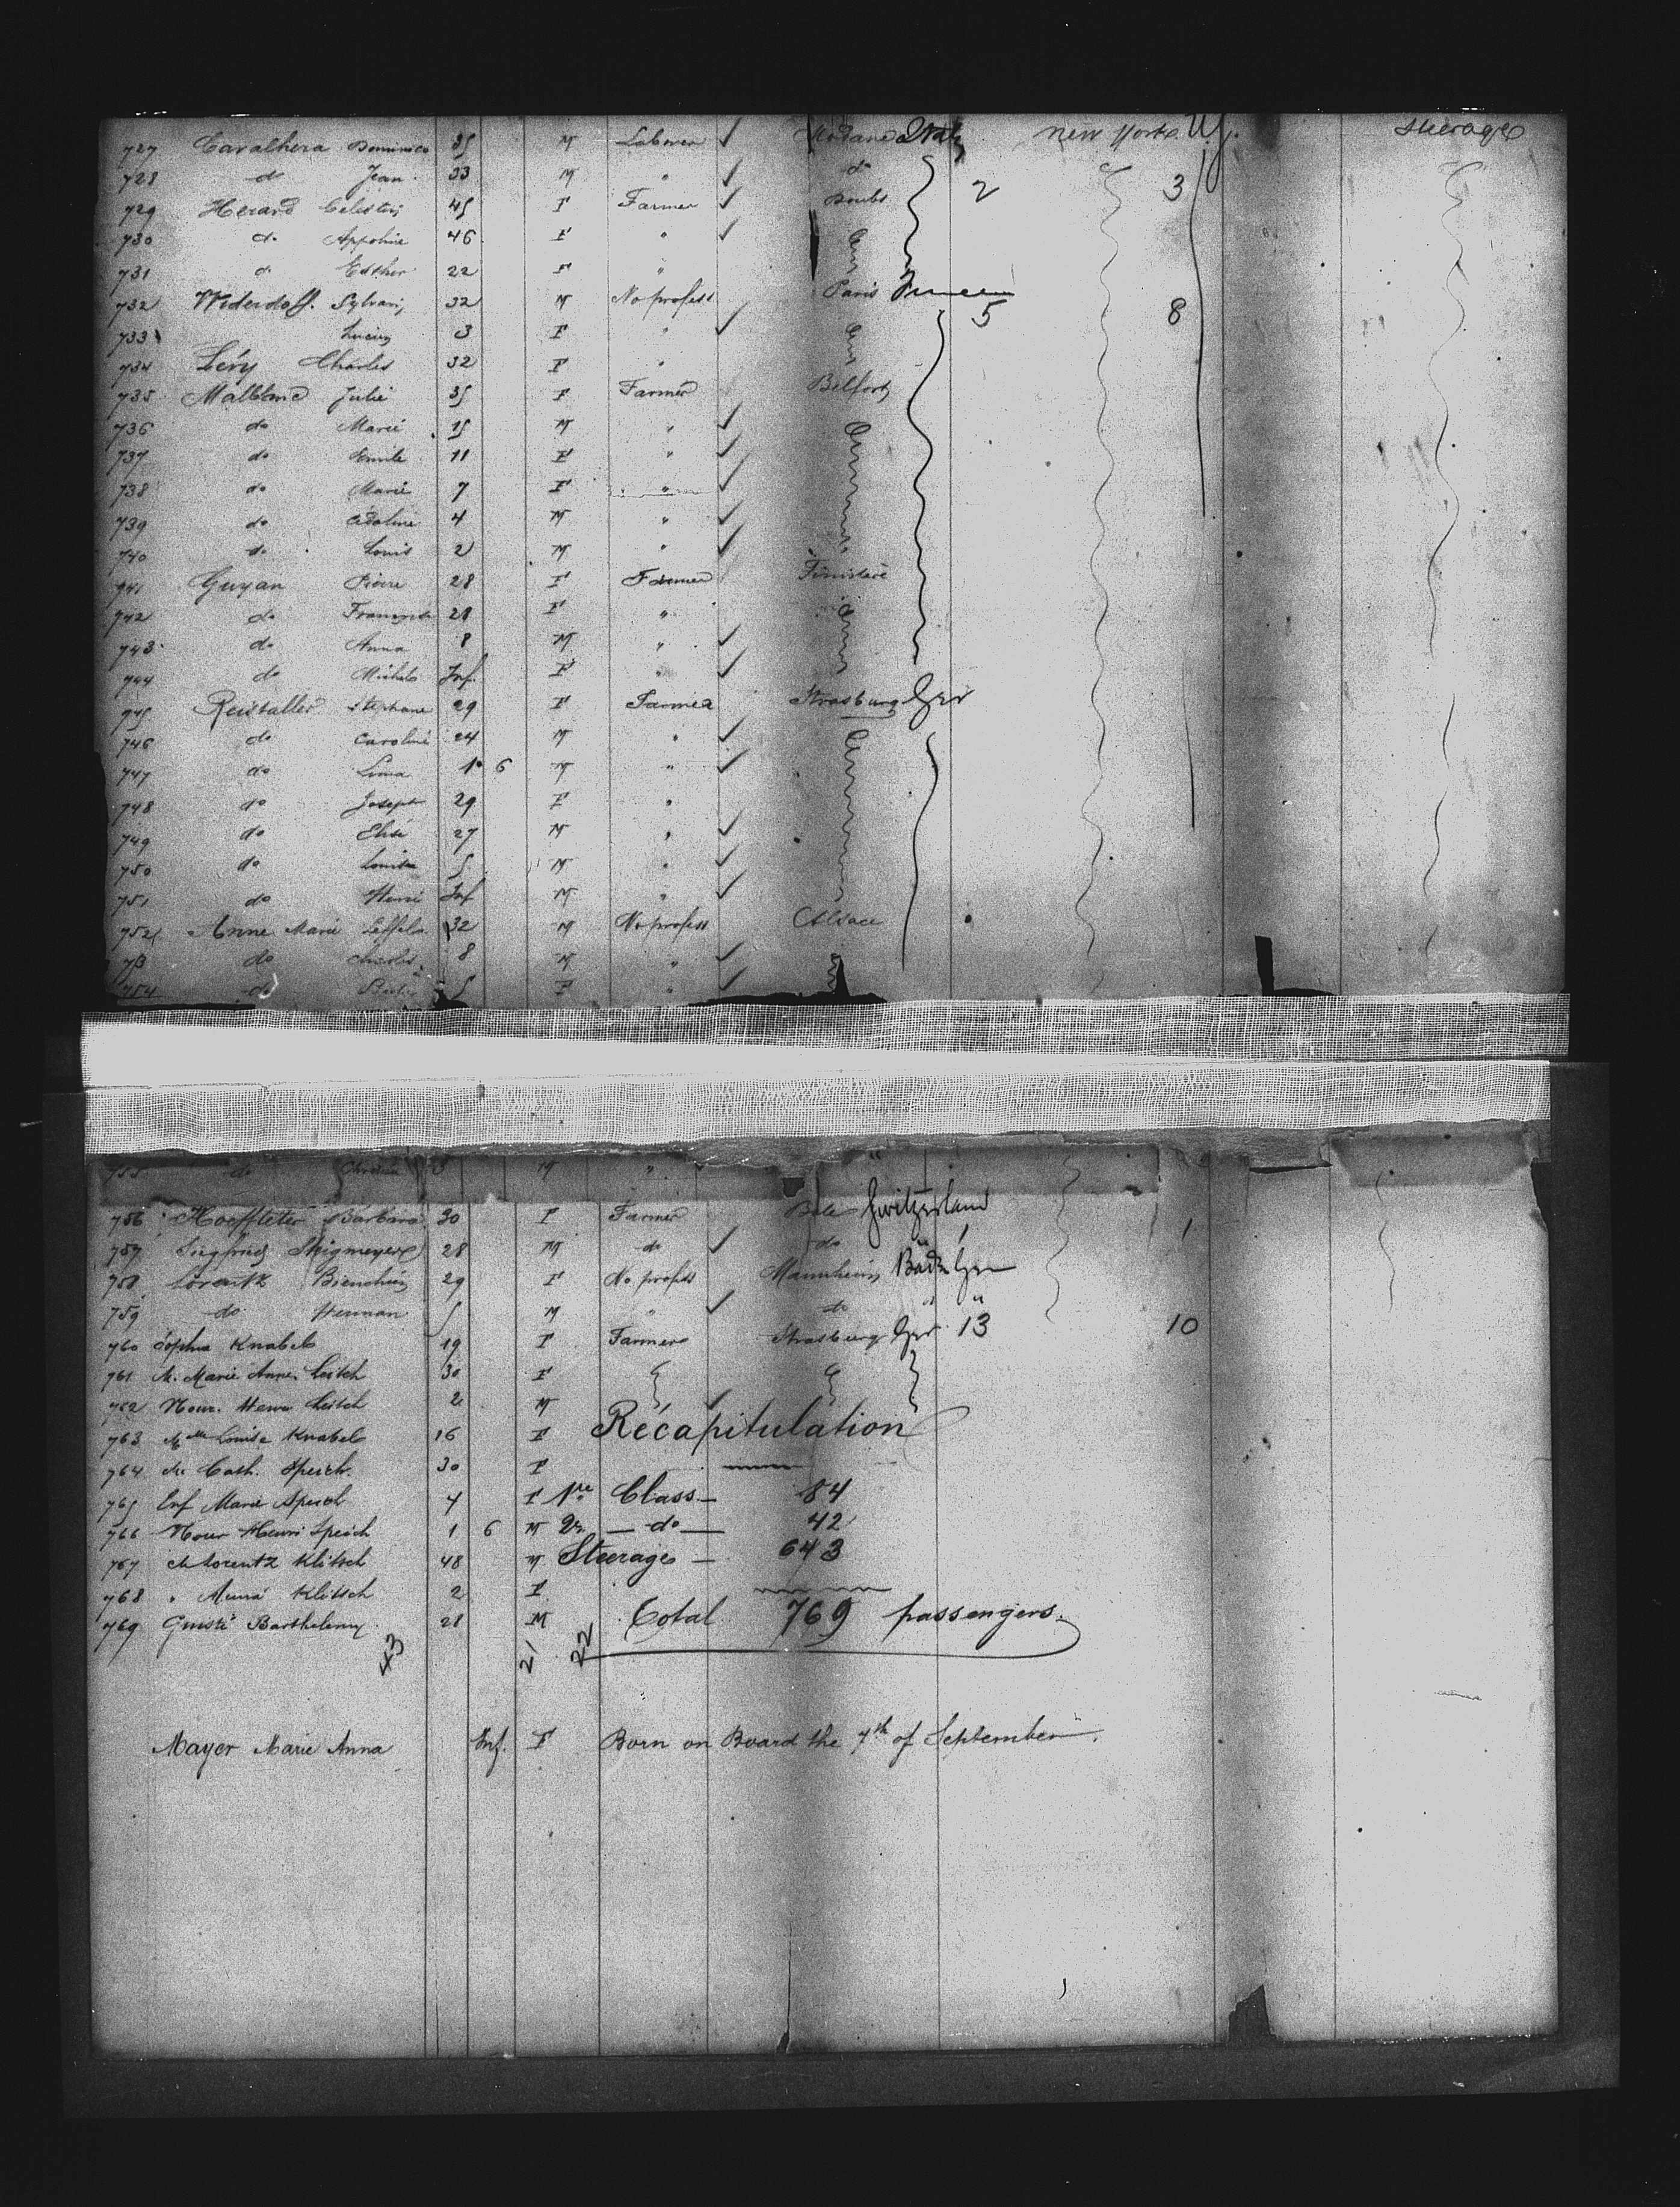 727 Cavalhera Dominico 35 M Laborer ✓ Modane Italy New York U.S. Steerage
728 do Jean 33 M " ✓ do
729 Herard Celestin 45 F Farmer ✓ Doubs 2 3
730 do Appoline 46 F " ✓
731 d. Esther 22 F "
732 Widerdoff. Sylvain 32 M No profess Paris France
733 Lucien 3 F " ✓ 5 8
734 Lévy Charles 32 F "
735 Malblanc Julie 35 F Farmer Belfort
736 do Marie 15 M " ✓
737 do Emile 11 F " ✓
738 do Marie 7 F " ✓
739 do Adoline 4 M " ✓
740 do Louis 2 M " ✓
741 Guyan Pierre 28 F Farmer Finistere
742 do 28 F "
743 do Anna 8 M " ✓
744 do Michel Inf. F " ✓
745 Reistaller Stephane 29 F Farmer Strasburg Ger
746 do Caroline 24 M " ✓
747 do 1 6 M " ✓
748 do Joseph 29 F "
749 do Elise 27 M " ✓
750 do Louise 5 M " ✓
751 do Henri Inf M " ✓
752 Anne Marie 32 M No profess Alsace
753 do Charles 8 M " ✓
754 do 5 F " ✓
755 do M "
756 Hoeffleter Barbara 30 F Farmer Bale Switzerland
757 Siegfried 28 M do ✓ do " 1
758 Lorentz 29 F No profess Mannheim Baden Ger
759 do Herman 5 M " ✓ do " "
760 Sophie Knabel 19 F Farmer Strasburg Ger 13 10
761 M. Marie Anne Leitch 30 F
762 Nour. Henri Leitch 2 M ✓
763 Mlle Louise Knabel 16 F
Récapitulation
764 M. Cath. Speich. 30 F
765 Enf Marie Speich 4 F 1re Class 84
766 Nour Henri Speich 1 6 M 2e do 42
767 M Lorentz Klitsch 48 M Steerage 643
768 " Klitsch 2 F
769 Barthelemy 28 M Total 769 passengers.
43 21 22
Mayer Marie Anna Inf. F Born on Board the 7th of September.